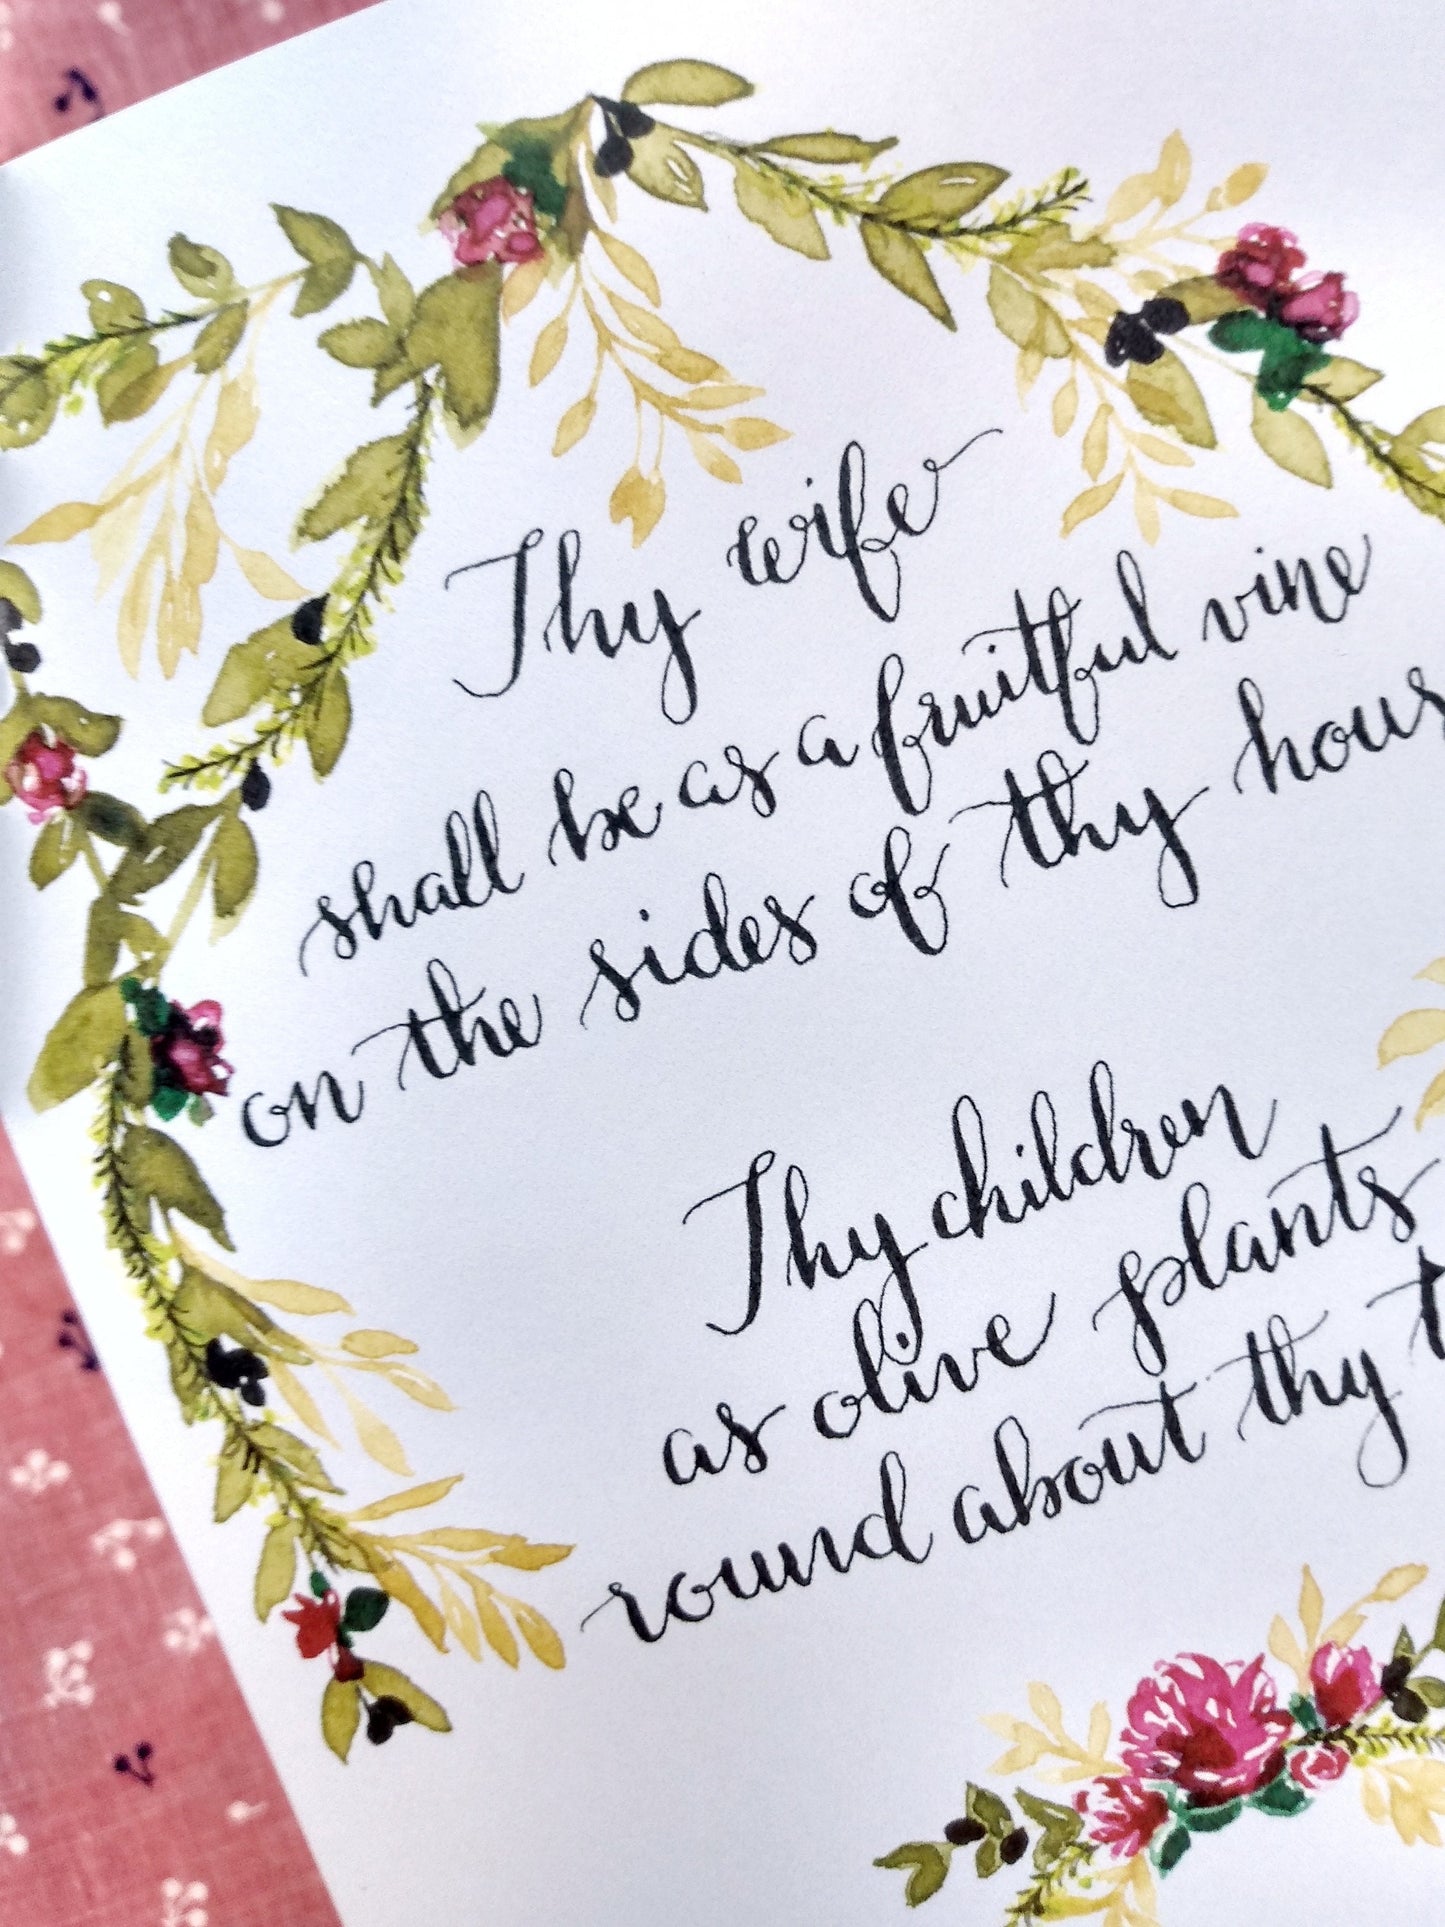 Thy wife
shall be as a fruitful vine
on the sides of thy hous
Thy children
as olive plants
round about thy t